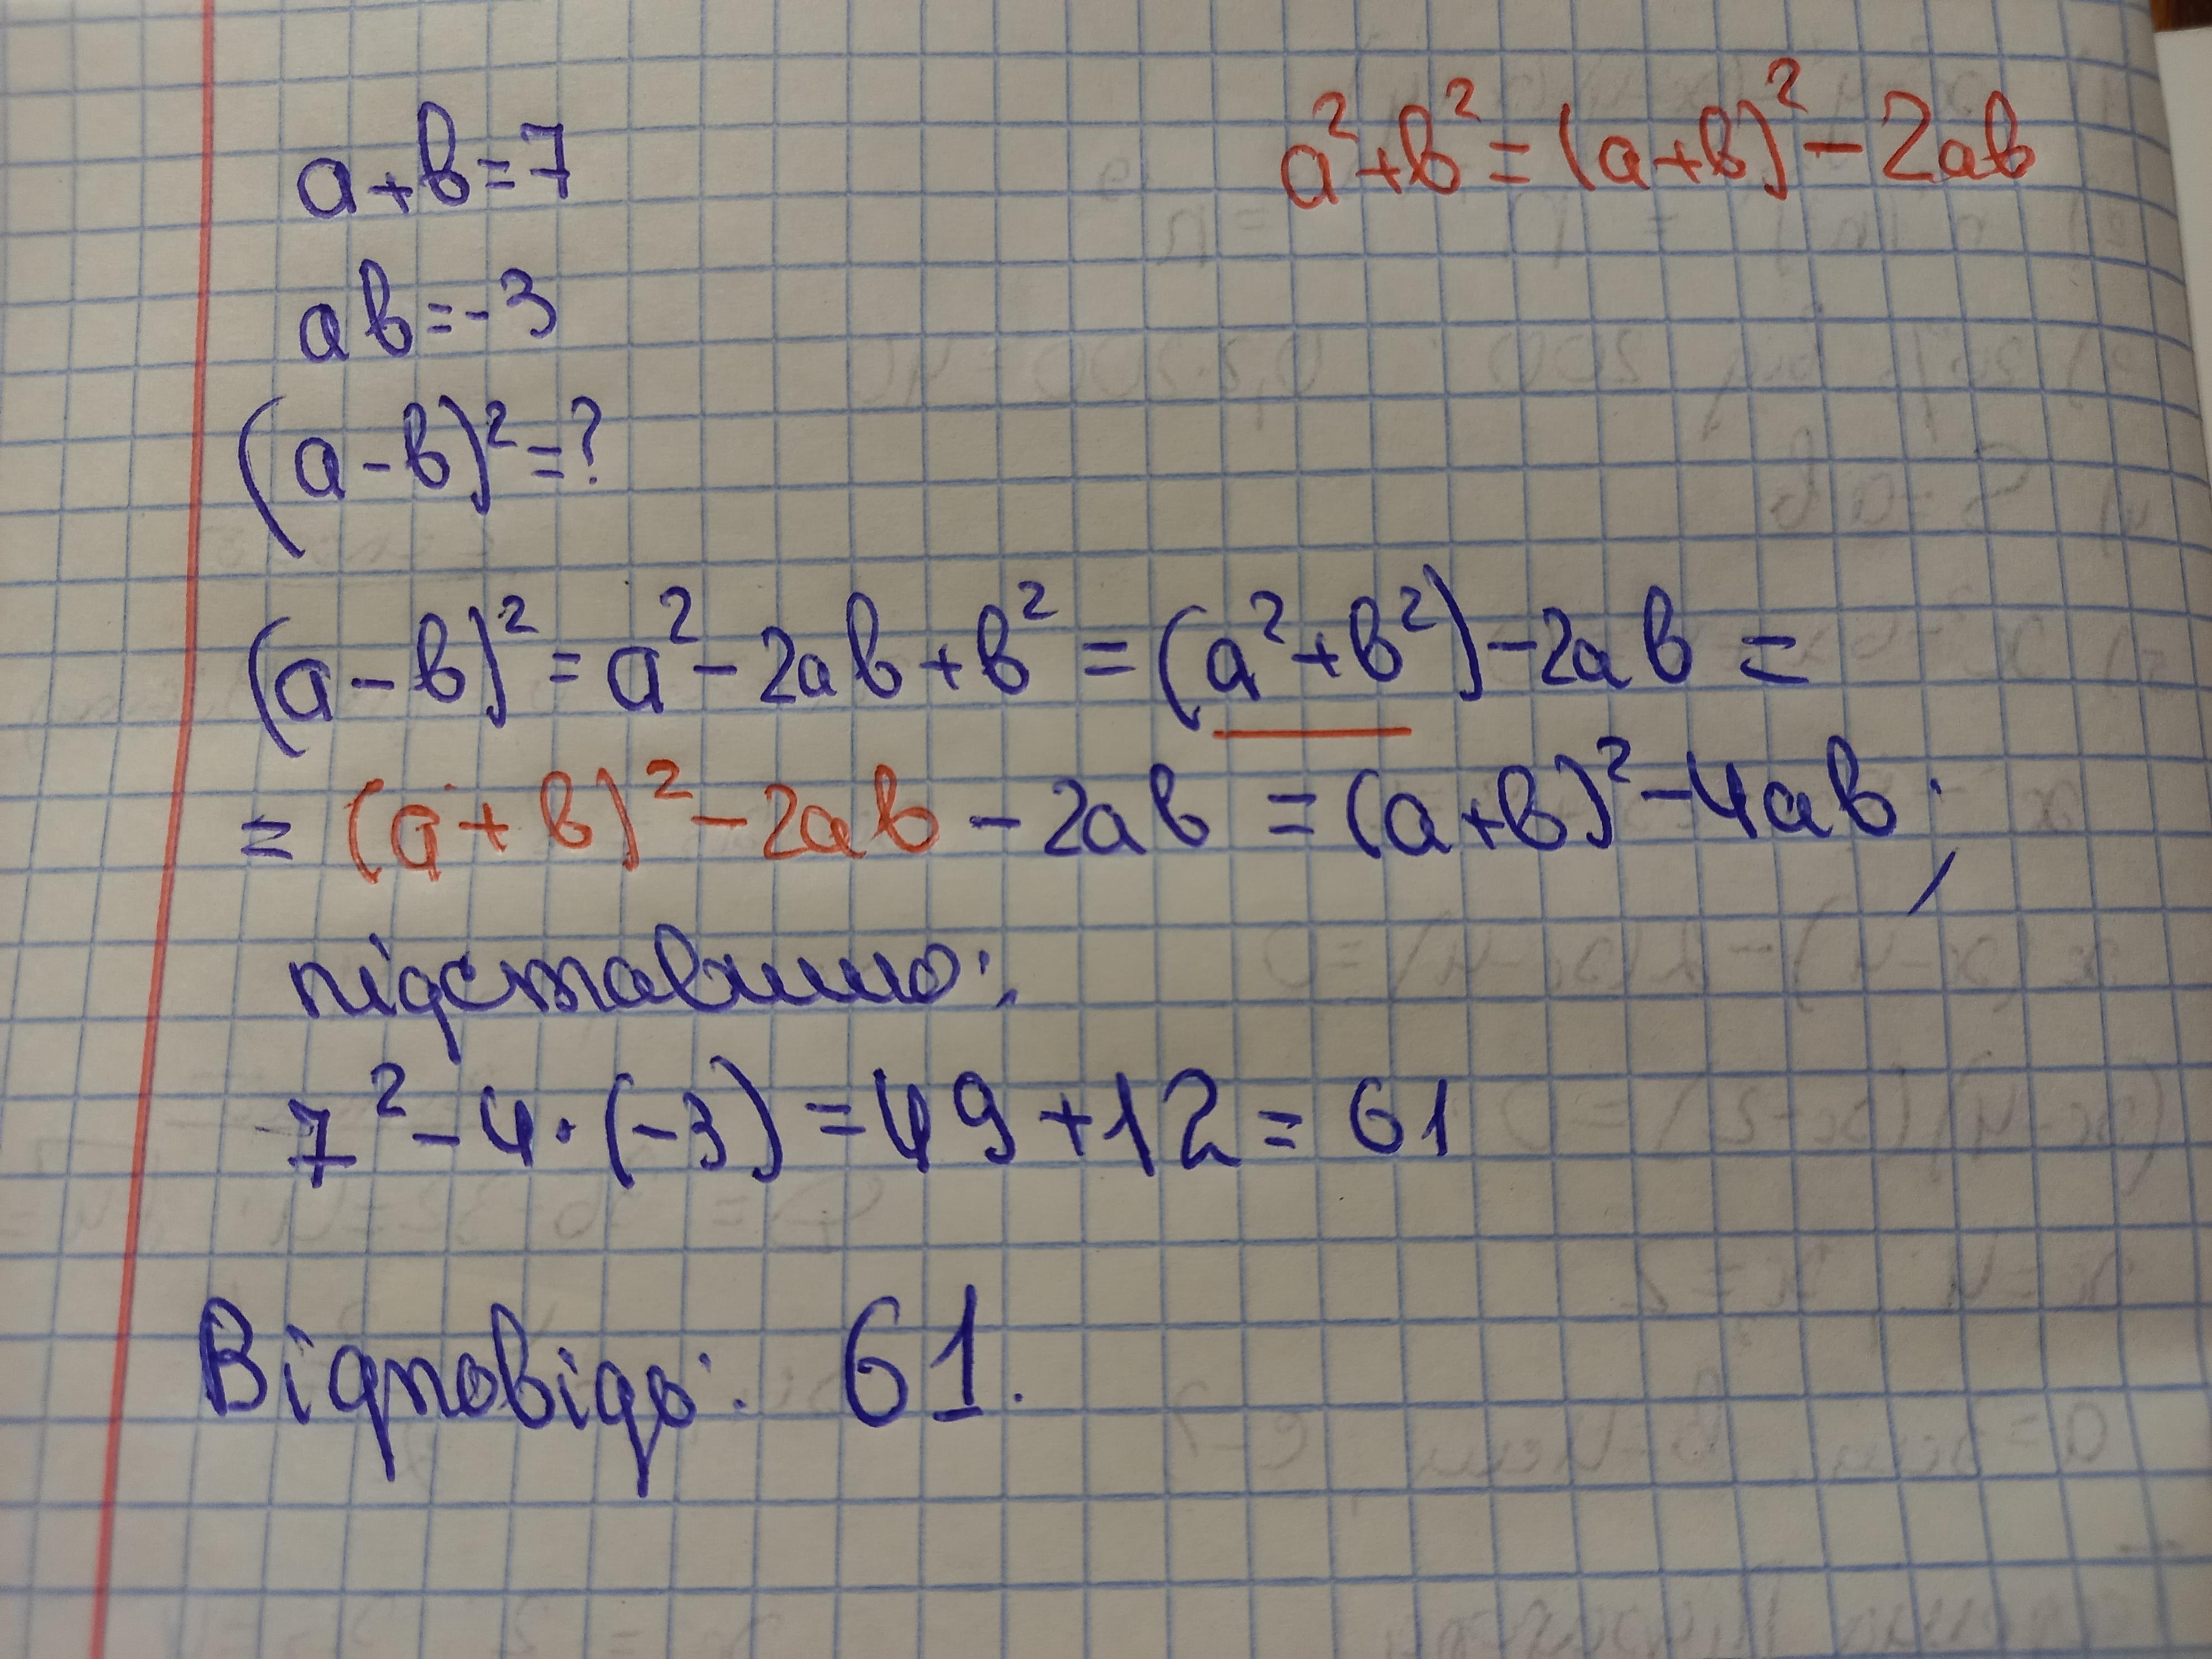 a+b=7
a²+b²=(a+b)²-2ab
ab=-3
(a-b)²=?
(a-b)²=a²-2ab+b²=(a²+b²)-2ab=
=(a+b)²-2ab-2ab=(a+b)²-4ab;
підставимо:
7²-4·(-3)=49+12=61
Відповідь: 61.